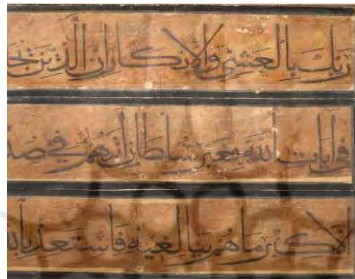 ربك بالعشي والابكار ان الذين
في ايات الله بغير سلطان اتهم ان في
الا كبر ما هم ببالغيه فاستعذ